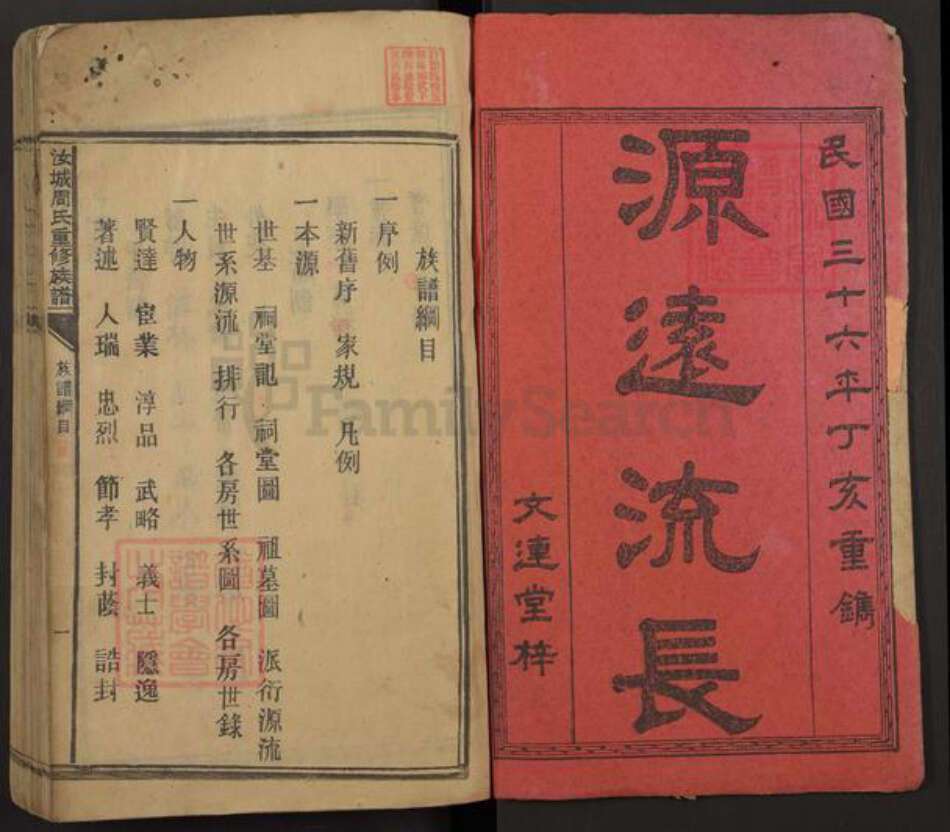 民國三十六年丁亥重鐫
源遠流長
文連堂梓
族譜綱目
一序例
新舊序 家規 凡例
一本源
世基 祠堂記 祠堂圖 祖墓圖 派衍源流
世系源流 排行 各房世系圖 各房世錄
一人物
賢達 宦業 淳品 武略 義士 隱逸
著述 人瑞 忠烈 節孝 封蔭 誥封
汝城周氏重修族譜
族譜綱目
一
FamilySearch